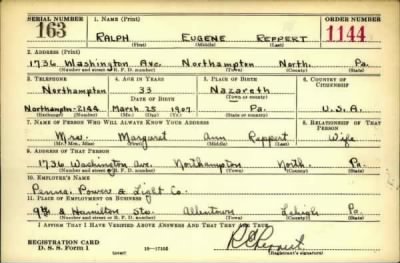 SERIAL NUMBER 1. NAME (Print) ORDER NUMBER
163 RALPH EUGENE REPPERT 1144
(First) (Middle) (Last)
2. ADDRESS (Print)
1736 Washington Ave. Northampton North. Pa.
(Number and street or R. F. D. number) (Town) (County) (State)
3. TELEPHONE 4. AGE IN YEARS 5. PLACE OF BIRTH 6. COUNTRY OF CITIZENSHIP
Northampton 33 Nazareth
DATE OF BIRTH (Town or county)
Northampton-2144 March 25 1907 Pa. U.S.A.
(Exchange) (Number) (Mo.) (Day) (Yr.) (State or country)
7. NAME OF PERSON WHO WILL ALWAYS KNOW YOUR ADDRESS 8. RELATIONSHIP OF THAT PERSON
Mrs. Margaret Ann Reppert Wife
(Mr., Mrs., Miss) (First) (Middle) (Last)
9. ADDRESS OF THAT PERSON
1736 Washington Ave. Northampton North. Pa.
(Number and street or R. F. D. number) (Town) (County) (State)
10. EMPLOYER'S NAME
Penna. Power & Light Co.
11. PLACE OF EMPLOYMENT OR BUSINESS
9th & Hamilton Sts. Allentown Lehigh Pa.
(Number and street or R. F. D. number) (Town) (County) (State)
I AFFIRM THAT I HAVE VERIFIED ABOVE ANSWERS AND THAT THEY ARE TRUE.
REGISTRATION CARD
D. S. S. Form 1 (over) 16-17105 (Registrant's signature)